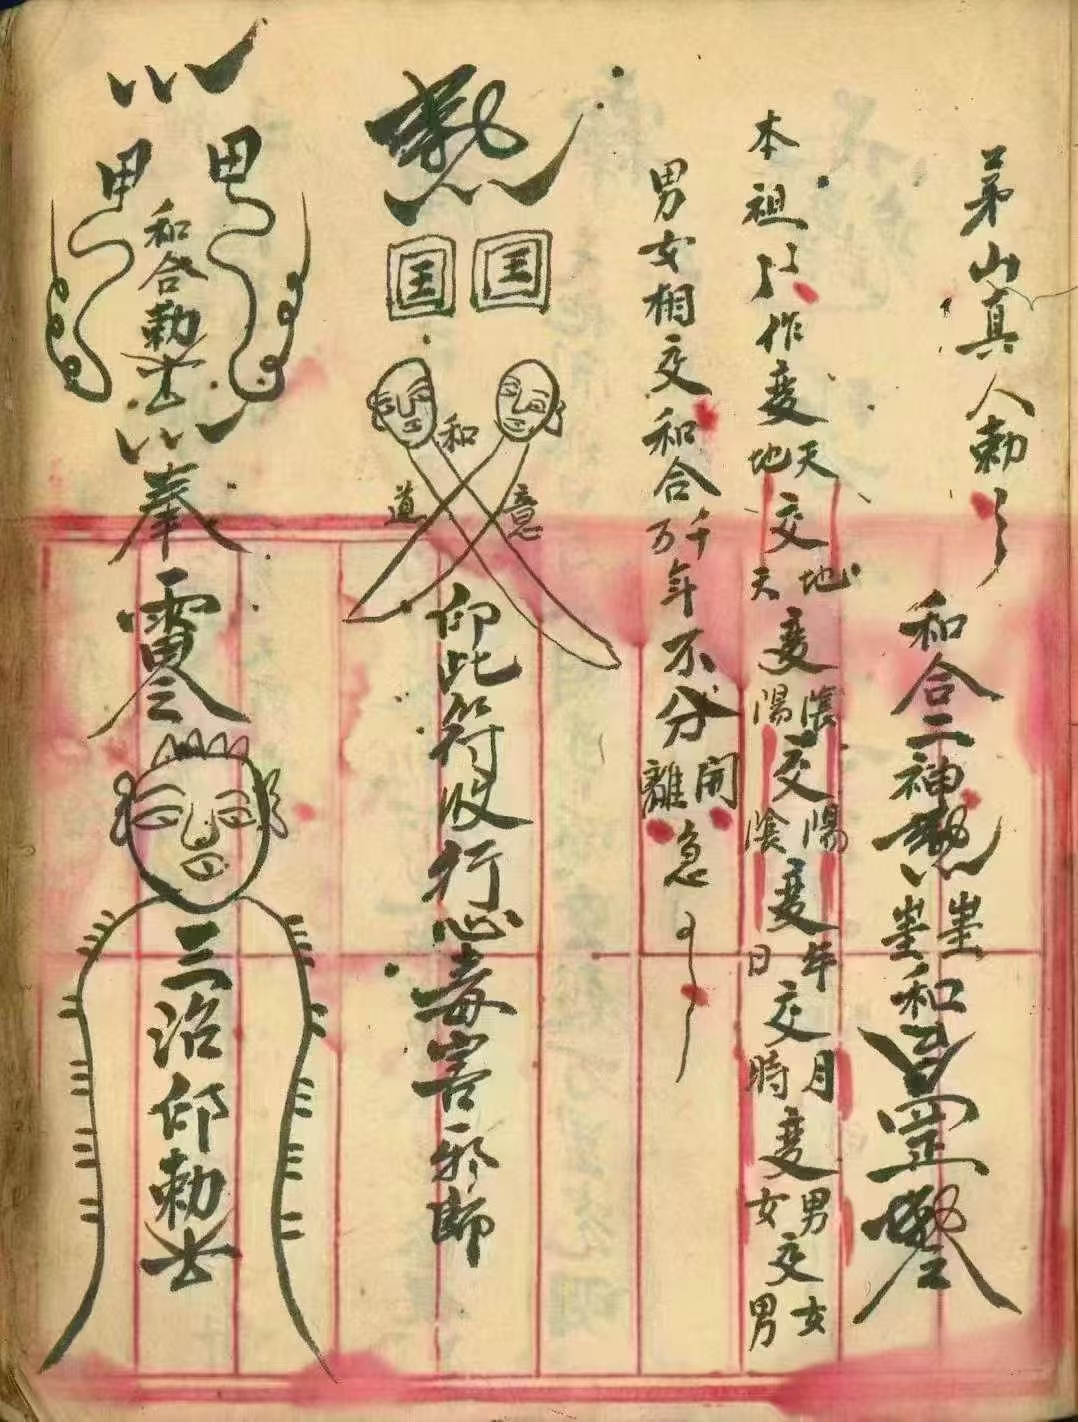 茅山真人勅
和合二神
和
罡
本祖師作變天地交地天變陰陽交陽陰變年日交月時變男女交女男
男女相交和合千万年不分開離急
囯囯
和
道意
仰此符收行心毒害邪師
和合勅令
奉
三治仰勅令